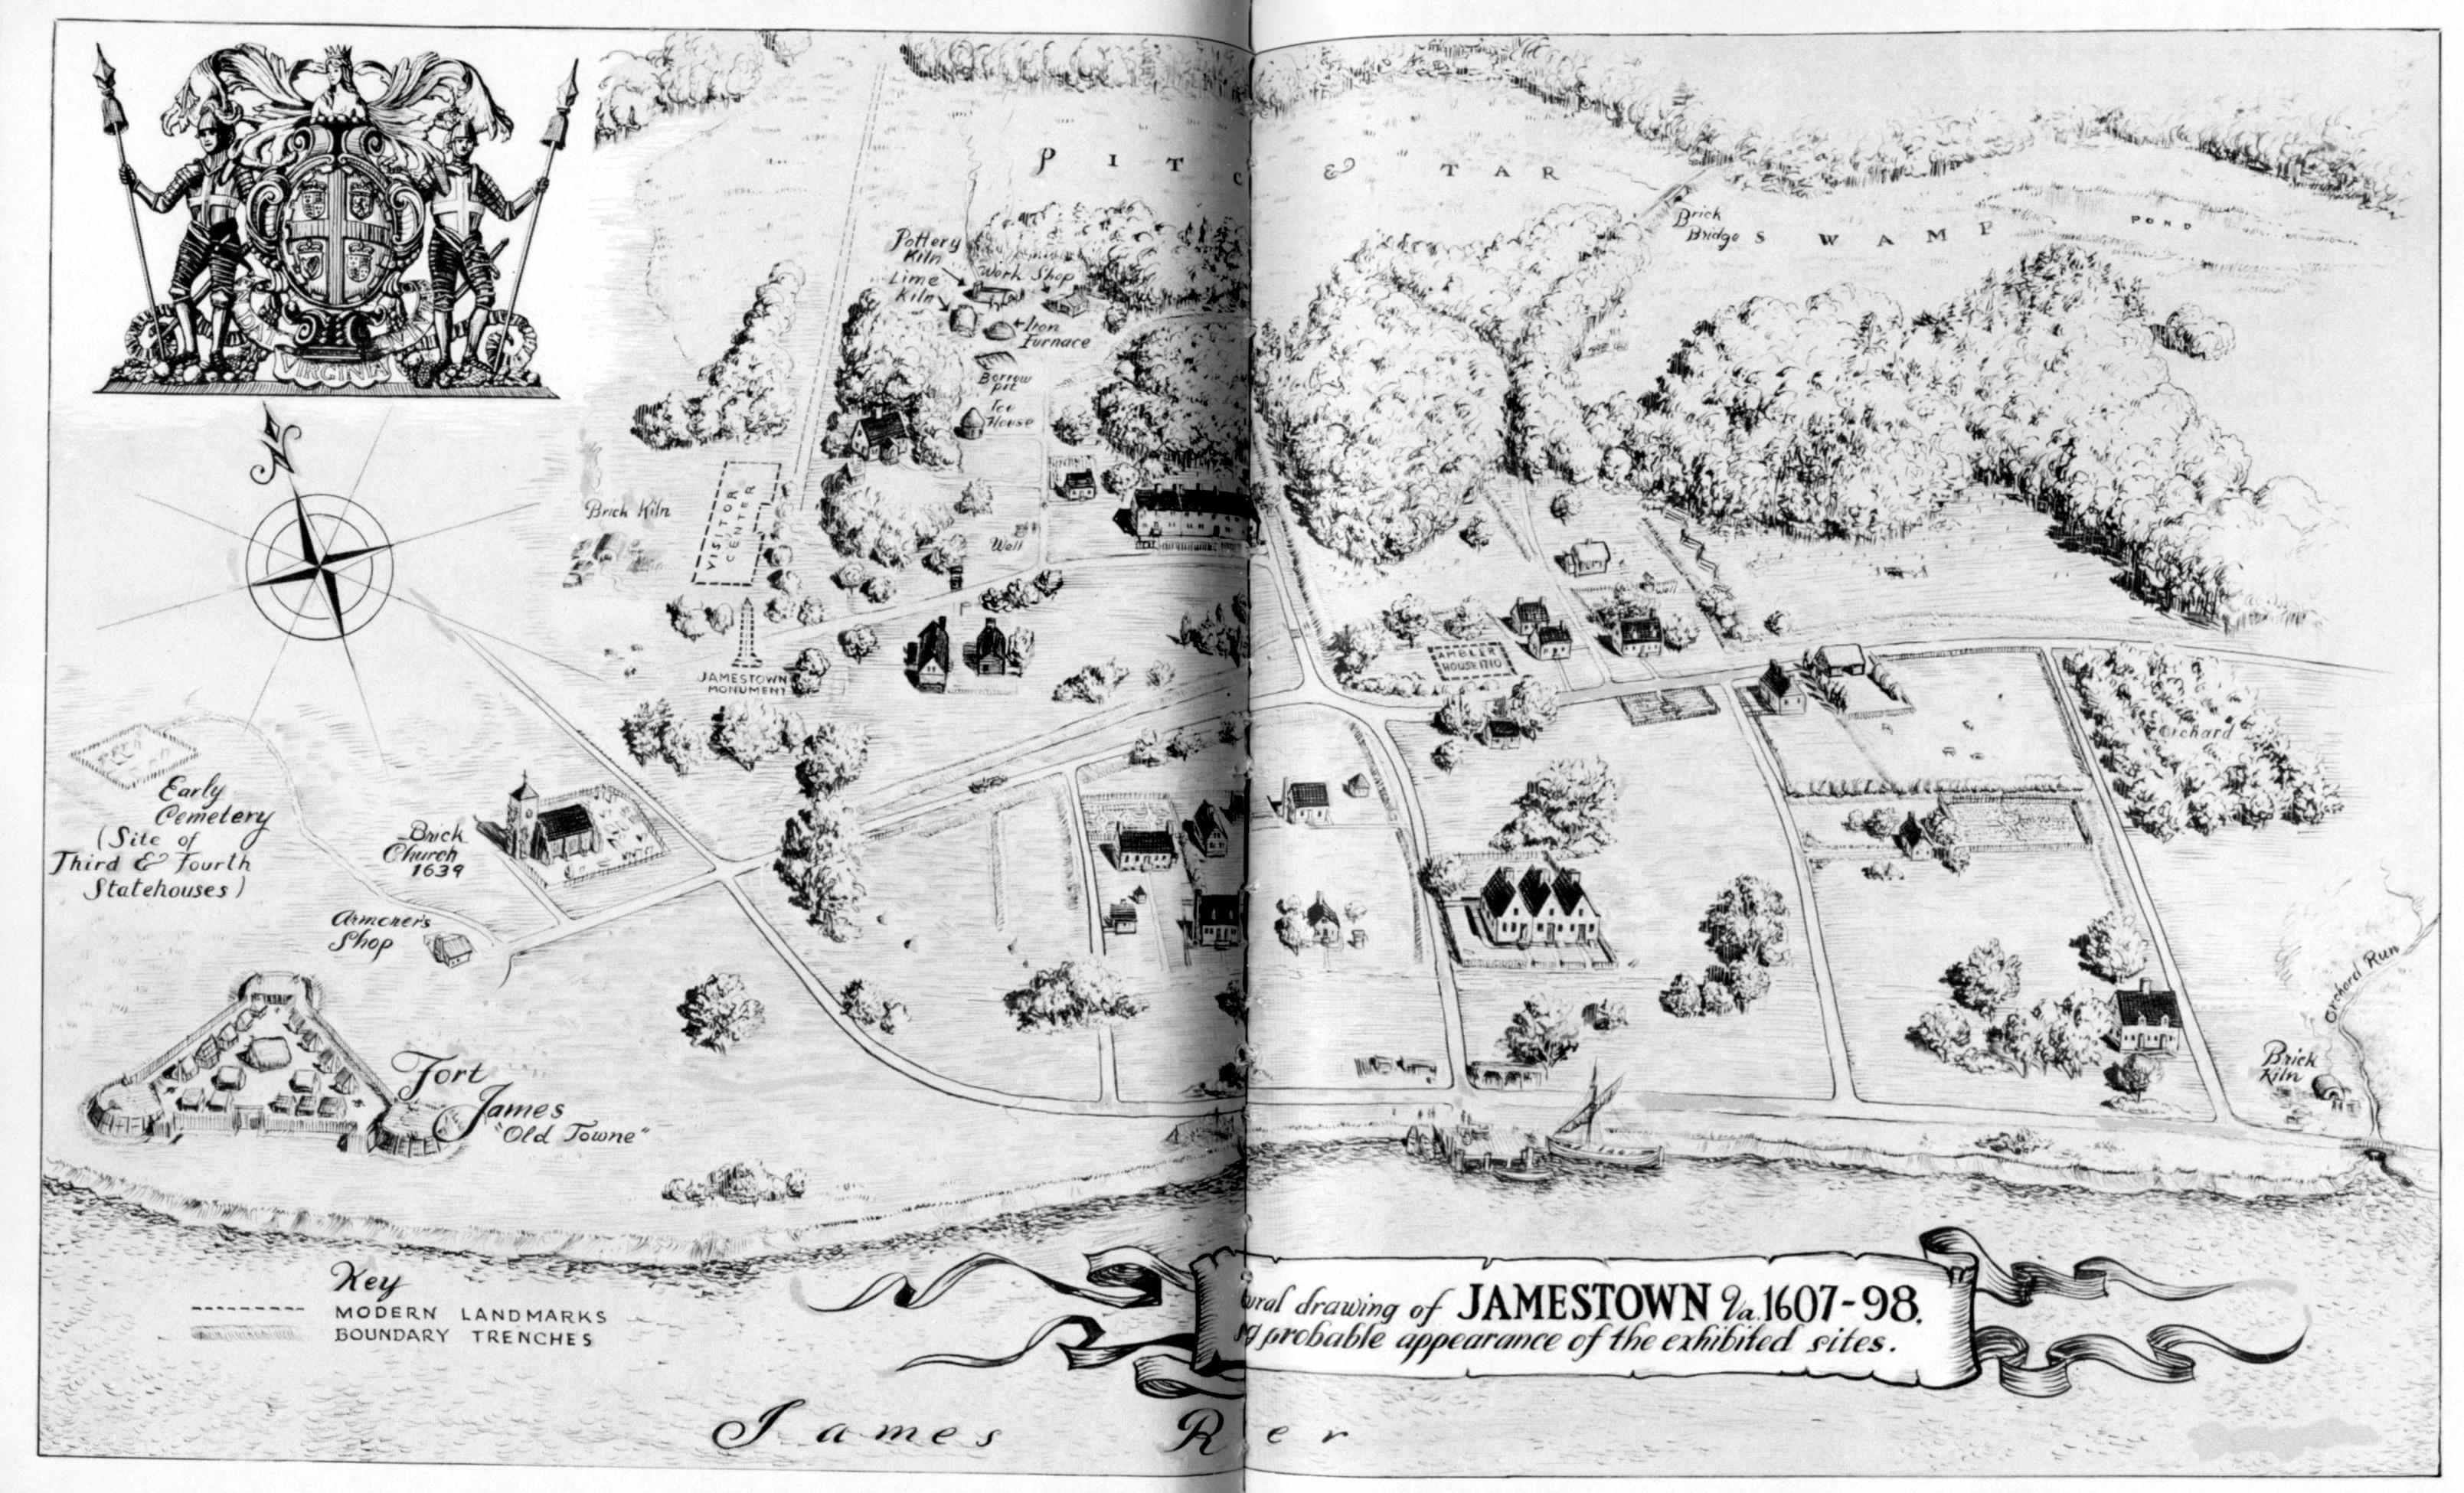 VIRGINIA
N
PITC
& TAR
SWAMP
POND
Brick
Bridge
Pottery
Kiln
Work Shop
Lime
Kiln
Iron
Furnace
Borrow
pit
Ice
House
Brick Kiln
VISITOR
CENTER
Well
JAMESTOWN
MONUMENT
AMBLER
HOUSE 1710
Well
Orchard
Early
Cemetery
(Site of
Third & Fourth
Statehouses)
Brick
Church
1639
Armorer's
Shop
Fort
James
"Old Towne"
Orchard Run
Brick
Kiln
Key
MODERN LANDMARKS
BOUNDARY TRENCHES
ural drawing of JAMESTOWN Va. 1607-98.
g probable appearance of the exhibited sites.
James R er